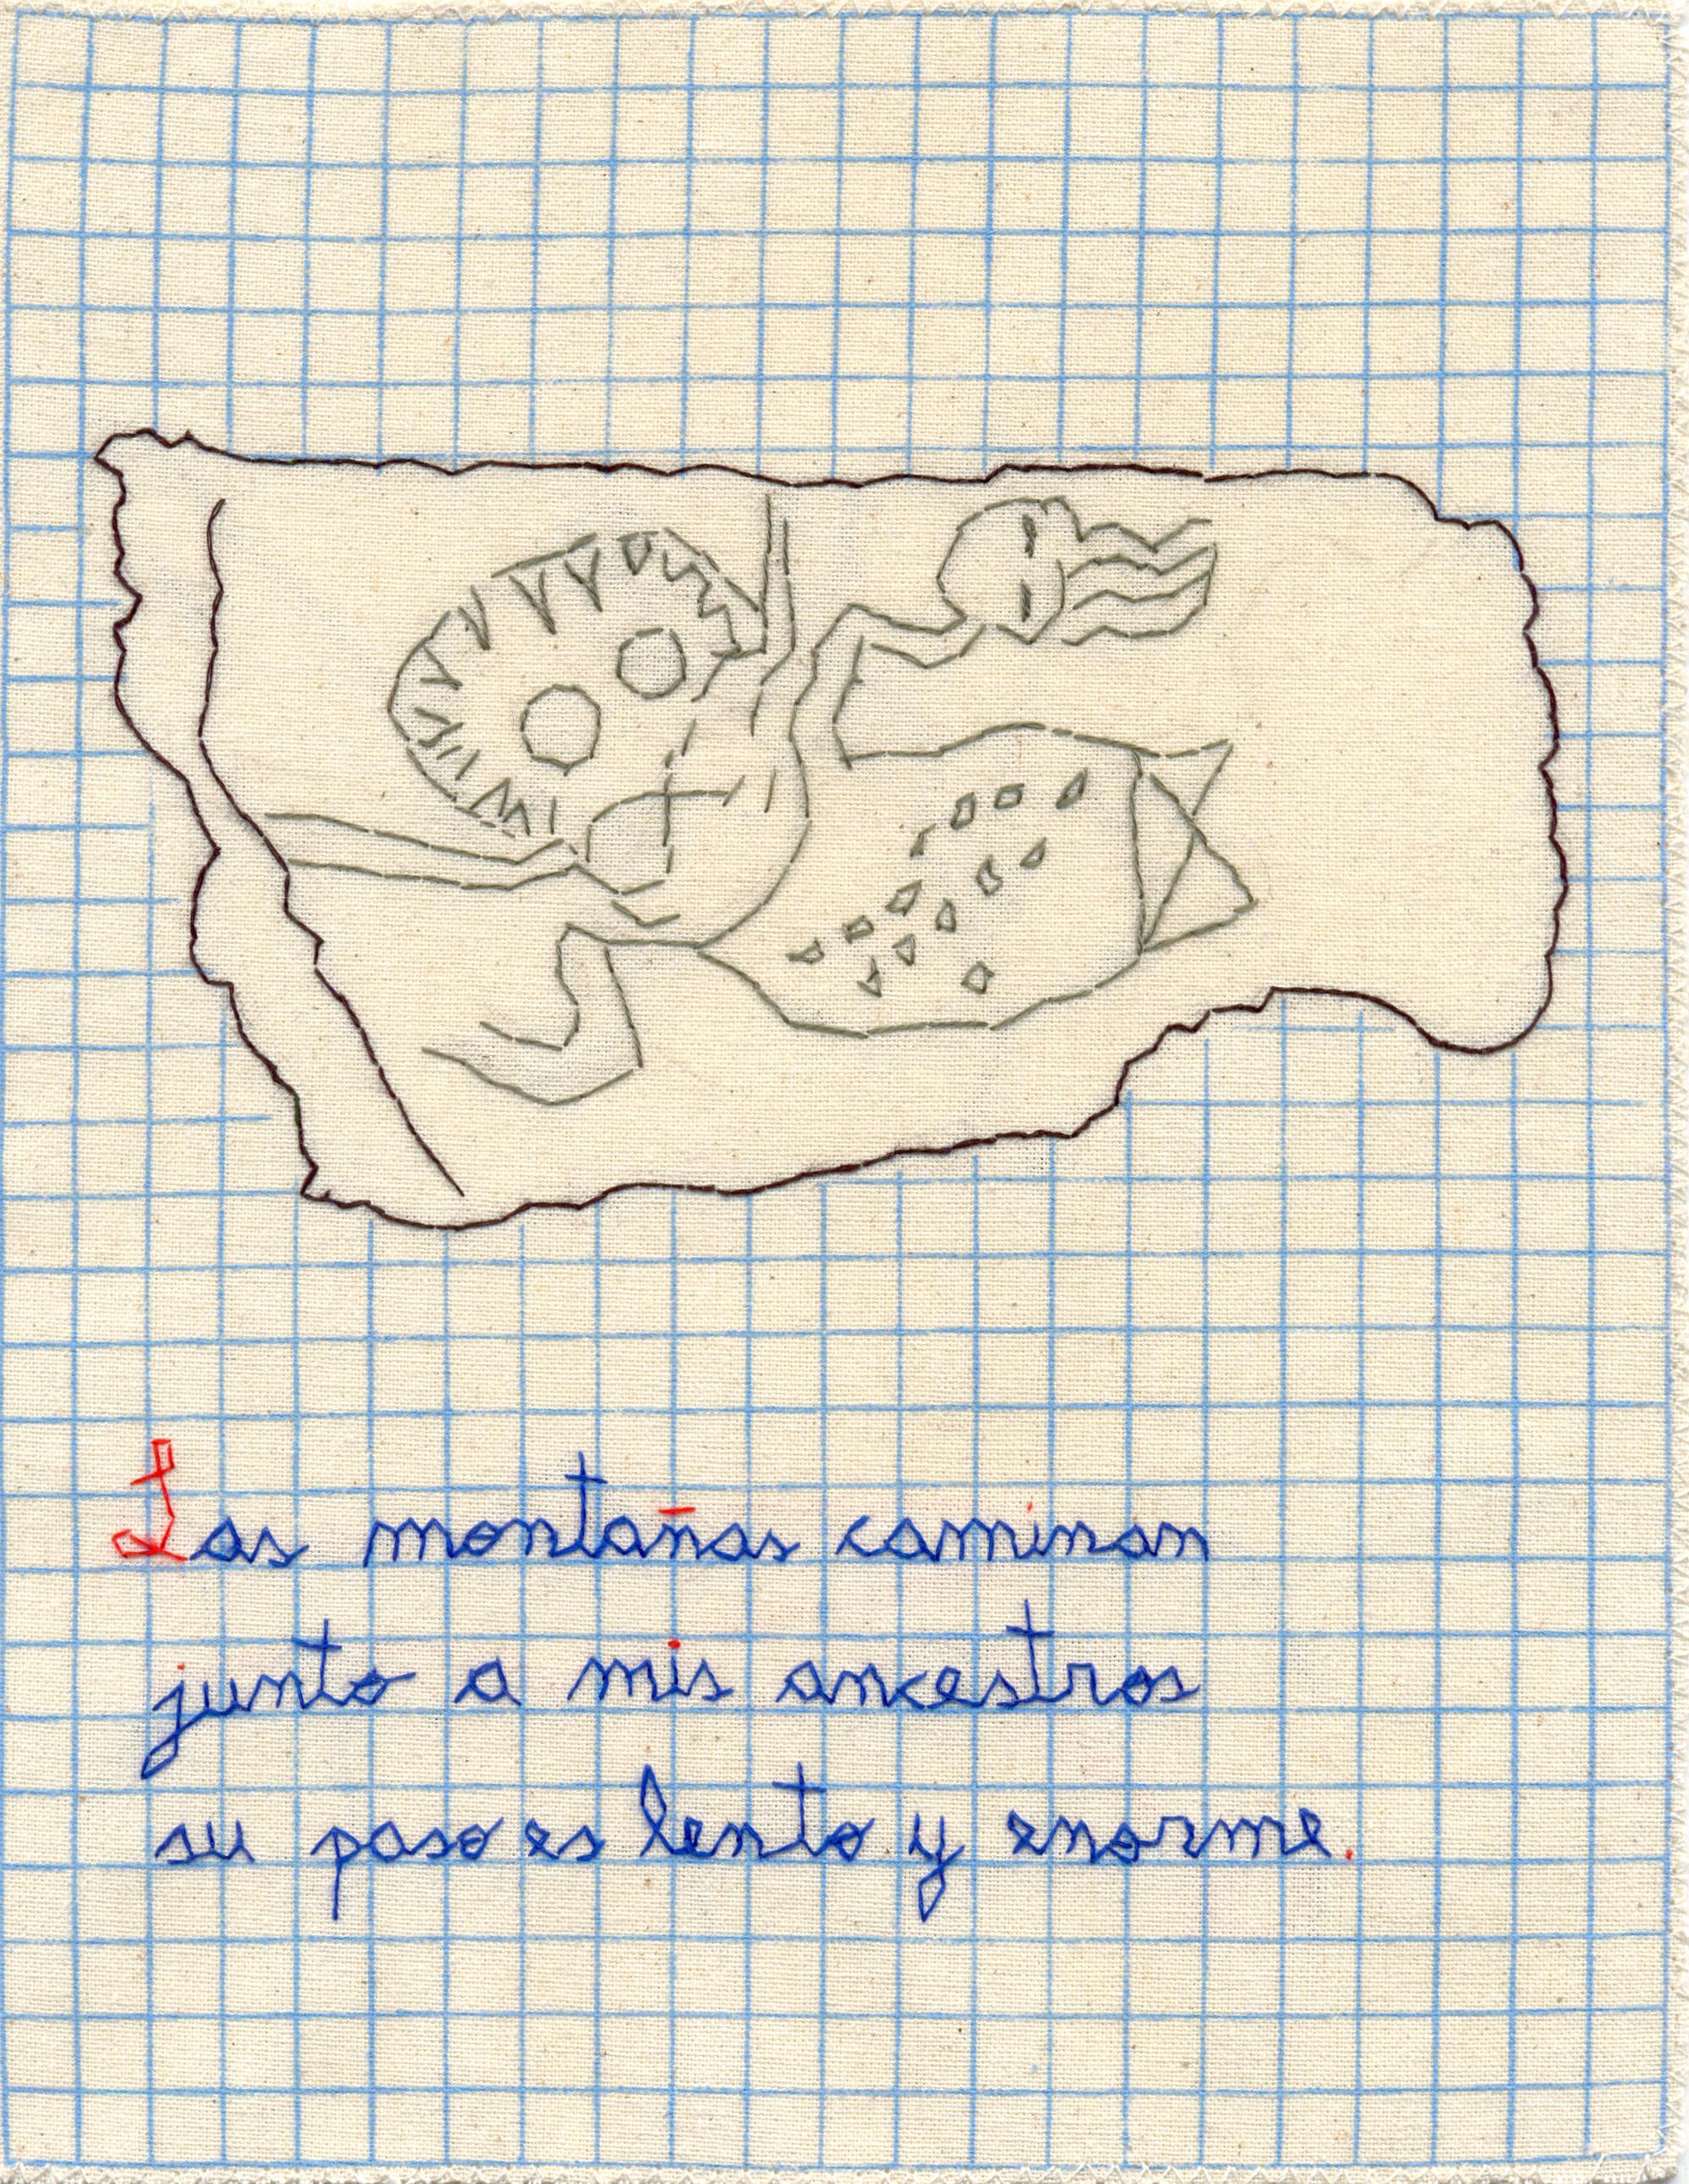 Las montañas caminan
junto a mis ancestros
su paso es lento y enorme.